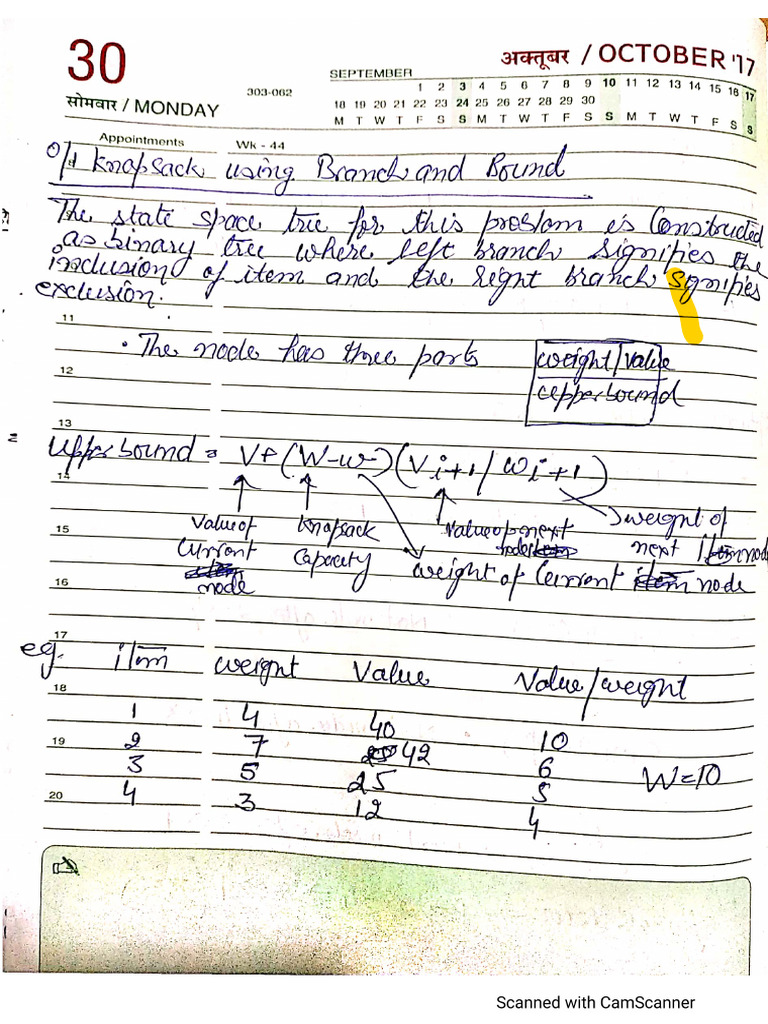 30
अक्तूबर / OCTOBER '17
सोमवार / MONDAY
303-062
SEPTEMBER
1 2 3 4 5 6 7 8 9 10 11 12 13 14 15 16 17
18 19 20 21 22 23 24 25 26 27 28 29 30
M T W T F S S M T W T F S S M T W T F S S
Appointments Wk - 44
0/1 Knapsack using Branch and Bound
The state space tree for this problem is Constructed
as binary tree where left branch signifies the
inclusion of item and the right branch sgnifies
exclusion.
11
• The node has three parts weight/value
12
upperbound
13
Upperbound = V+(W-w)(Vi+1/wi+1)
14
15
Value of Knapsack Value of next weight of
Current Capacity node next node
node weight of Current node
16
17
eg. item weight Value Value/weight
18
1 4 40 10
19
2 7 42 6
3 5 25 5 W=10
20
4 3 12 4
Scanned with CamScanner